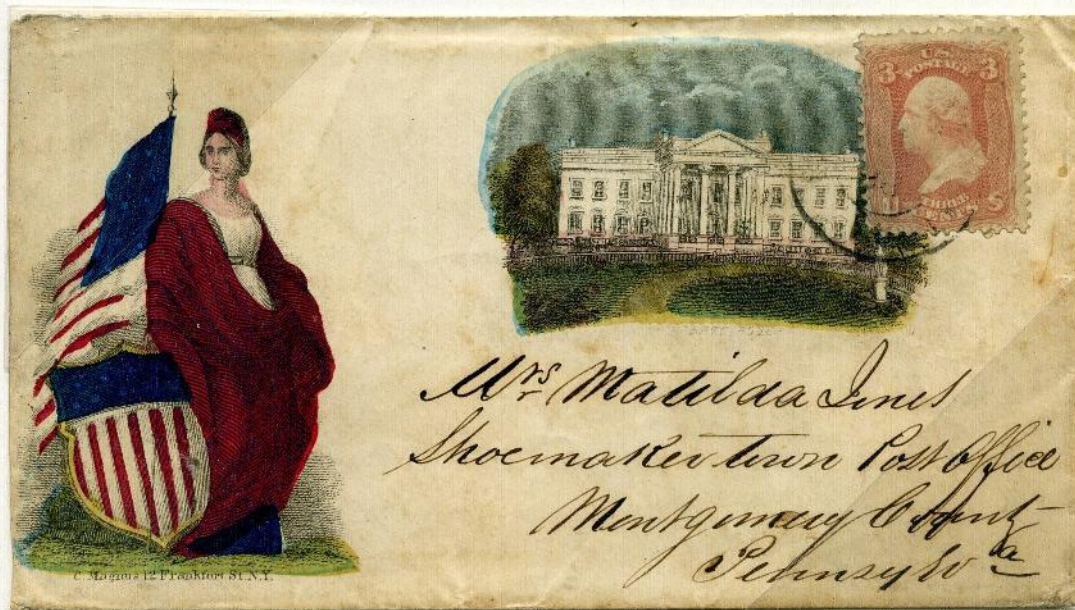 U.S.
POSTAGE
3 3
THREE
CENTS
Mrs Matilda Jones
Shoemakertown Post Office
Montgomery County
Pennsylva
C. Magnus 12 Frankfort St. N.Y.